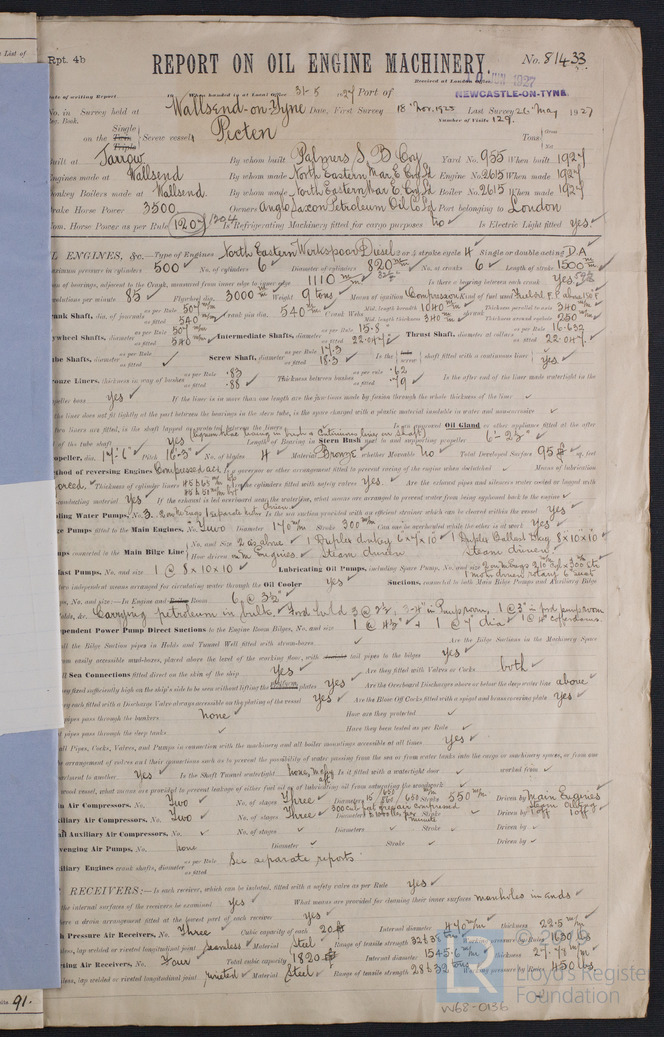 Rpt. 4b
REPORT ON OIL ENGINE MACHINERY.
No. 81433
Received at London Office
JUN 1927
Date of writing Report 19 When handed in at Local Office 31-5 1927 Port of NEWCASTLE-ON-TYNE
No. in Survey held at Wallsend-on-Tyne Date, First Survey 18 Nov. 1925 Last Survey 26 May 1927
Reg. Book. Number of Visits 129.
on the Single Twin Triple Screw vessel Pecten Tons
Built at Jarrow By whom built Palmers S. B. Coy Yard No. 955 When built 1927
Engines made at Wallsend By whom made North Eastern Mar. E. Coy Ld Engine No. 2615 When made 1927
Donkey Boilers made at Wallsend By whom made North Eastern Mar. E. Coy Ld Boiler No. 2615 When made 1927
Brake Horse Power 3500 Owners Anglo Saxon Petroleum Oil Co Ld Port belonging to London
Nom. Horse Power as per Rule 1207 Is Refrigerating Machinery fitted for cargo purposes no Is Electric Light fitted yes.
OIL ENGINES, &c.—Type of Engines North Eastern Werkspoor Diesel 2 or 4 stroke cycle 4 Single or double acting D.A.
Maximum pressure in cylinders 500 No. of cylinders 6 Diameter of cylinders 820 m/m No. of cranks 6 Length of stroke 1500 m/m
of bearings, adjacent to the Crank, measured from inner edge to inner edge 1110 m/m Is there a bearing between each crank yes
Revolutions per minute 85 Flywheel dia. 3000 m/m Weight 9 tons Means of ignition Compression Kind of fuel used Fuel oil F.P. above 150 F
Crank Shaft, dia. of journals as per Rule 507 m/m as fitted 540 m/m Crank pin dia. 540 m/m Crank Webs Mid. length breadth 1040 m/m Mid. length thickness 340 m/m Thickness parallel to axis 340 m/m Thickness around eyehole 250 m/m
Flywheel Shafts, diameter as per Rule 507 m/m as fitted 540 m/m Intermediate Shafts, diameter as per Rule 15.8" as fitted Thrust Shaft, diameter at collars as per Rule 16.632 as fitted 22.047.
Tube Shafts, diameter as per Rule as fitted Screw Shaft, diameter as per Rule 17.3 as fitted 18.3 Is the screw shaft fitted with a continuous liner yes
Bronze Liners, thickness in way of bushes as per Rule .83 as fitted .88 Thickness between bushes as per rule .62 as fitted .79 Is the after end of the liner made watertight in the
propeller boss yes If the liner is in more than one length are the joints made by fusion through the whole thickness of the liner
the liner does not fit tightly at the part between the bearings in the stern tube, is the space charged with a plastic material insoluble in water and non-corrosive
two liners are fitted, is the shaft lapped or protected between the liners Is an approved Oil Gland or other appliance fitted at the after
of the tube shaft yes Length of Bearing in Stern Bush next to and supporting propeller 6'-2½"
Propeller, dia. 17'-6" Pitch 16'-3" No. of blades 4 Material Bronze whether Moveable no Total Developed Surface 95 sq. feet
Method of reversing Engines Compressed air
forced. Thickness of cylinder liners Are the cylinders fitted with safety valves yes. Are the exhaust pipes and silencers water cooled or lagged with
non-conducting material yes If the exhaust is led overboard near the waterline, what means are arranged to prevent water being syphoned back to the engine
Cooling Water Pumps, No. 3. Is the sea suction provided with an efficient strainer which can be cleared within the vessel yes
Bilge Pumps fitted to the Main Engines, No. Two Diameter 170 m/m Stroke 300 m/m Can one be overhauled while the other is at work yes
Pumps connected to the Main Bilge Line No. and Size 2 as above 1 Duplex donkey 6 x 7 x 10 1 Duplex Ballast 8 x 10 x 10
How driven Main Engines Steam driven Steam driven
Ballast Pumps, No. and size 1 @ 8 x 10 x 10 Lubricating Oil Pumps, including Spare Pump, No. and size
two independent means arranged for circulating water through the Oil Cooler yes Suctions, connected to both Main Bilge Pumps and Auxiliary Bilge
Pumps, No. and size:—In Engine and Boiler Room 6 @ 3½"
Holds, &c. Carrying petroleum in bulk. Ford hold 2 @ 2½, 2-4" in Pumproom, 1 @ 3" ford pumproom
Independent Power Pump Direct Suctions to the Engine Room Bilges, No. and size 1 @ 4½" + 1 @ 7" dia 1 @ 4" cofferdams
all the Bilge Suction pipes in Holds and Tunnel Well fitted with strum-boxes Are the Bilge Suctions in the Machinery Space
from easily accessible mud-boxes, placed above the level of the working floor, with straight tail pipes to the bilges yes
all Sea Connections fitted direct on the skin of the ship yes Are they fitted with Valves or Cocks both
they fixed sufficiently high on the ship's side to be seen without lifting the platform plates yes Are the Overboard Discharges above or below the deep water line above
they each fitted with a Discharge Valve always accessible on the plating of the vessel yes Are the Blow Off Cocks fitted with a spigot and brass covering plate yes
pipes pass through the bunkers none How are they protected
pipes pass through the deep tanks Have they been tested as per Rule
all Pipes, Cocks, Valves, and Pumps in connection with the machinery and all boiler mountings accessible at all times yes
the arrangement of valves and their connections such as to prevent the possibility of water passing from the sea or from water tanks into the cargo or machinery spaces, or from one
compartment to another yes Is the Shaft Tunnel watertight none, M aft Is it fitted with a watertight door worked from
wood vessel, what means are provided to prevent leakage of either fuel oil or lubricating oil from saturating the woodwork
Main Air Compressors, No. Two No. of stages Three Diameters Stroke 550 m/m Driven by Main Engines
Auxiliary Air Compressors, No. Two No. of stages Three Diameters Stroke Driven by
Small Auxiliary Air Compressors, No. No. of stages Diameters Stroke Driven by
Scavenging Air Pumps, No. none Diameter Stroke Driven by
Auxiliary Engines crank shafts, diameter as per Rule as fitted See separate reports
AIR RECEIVERS:—Is each receiver, which can be isolated, fitted with a safety valve as per Rule yes
the internal surfaces of the receivers be examined yes What means are provided for cleaning their inner surfaces manholes in ends
there a drain arrangement fitted at the lowest part of each receiver yes
High Pressure Air Receivers, No. Three Cubic capacity of each 20 Internal diameter 470 m/m thickness 22.5 m/m
Seamless, lap welded or riveted longitudinal joint Seamless Material Steel Range of tensile strength Working pressure by Rules 1630 lbs
Starting Air Receivers, No. Four Total cubic capacity 1820 Internal diameter 1545.6 m/m thickness 27.77 m/m
Seamless, lap welded or riveted longitudinal joint riveted Material Steel Range of tensile strength 28 to 32 tons Working pressure by Rules 450 lbs
W68-0136
© Lloyd's Register Foundation
91.